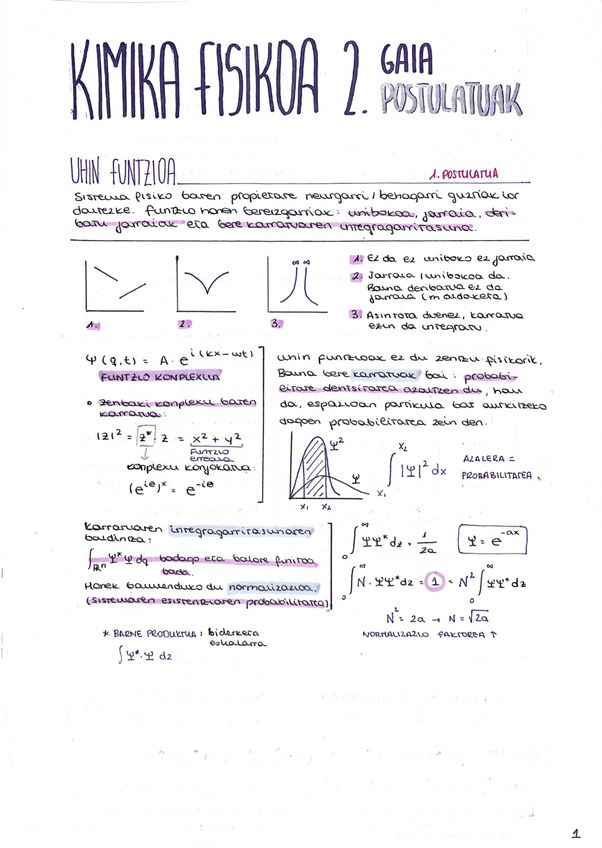 KIMIKA FISIKOA 2. GAIA
POSTULATUAK
UHIN FUNTZIOA
1. POSTULATUA
Sistema fisiko baten propietate neurgarri/behagarri guztiak lor
daitezke. Funtzio honen bereizgarriak: unibokoa, jarraia, deri-
batu jarraiak eta bere karratuaren integragarritasuna.
∞ ∞
1. 2. 3.
1. Ez da ez uniboko ez jarraia
2. Jarraia / unibokoa da.
Baina deribatua ez da
jarraia (m aldaketa)
3. Asintota duenez, karratua
ezin da integratu.
Ψ(q,t) = A · e^{i(kx-wt)}
FUNTZIO KONPLEXUA
• Zenbaki konplexu baten
karratua:
|z|² = z* · z = x² + y²
FUNTZIO
ERREALA
konplexu konjokatua:
(e^{iθ})* = e^{-iθ}
Uhin funtzioak ez du zentzu fisikorik.
Baina bere karratuak bai: probabi-
litate dentsitatea azaltzen du, hau
da, espazioan partikula bat aurkitzeko
dagoen probabilitatea zein den.
Ψ²
Ψ
x₁ x₂ x₁
∫ x₂ |Ψ|² dx
AZALERA =
PROBABILITATEA.
Karratuaren integragarritasunaren
baldintza:
∫_{ℝⁿ} Ψ* Ψ dq badago eta balore finitoa
bada.
Honek baimenduko du normalizazioa.
(sistemaren existentziaren probabilitatea)
* BARNE PRODUKTUA: biderketa
eskalarra
∫ Ψ* · Ψ dz
∫₀^∞ ΨΨ* dz = 1/2a
Ψ = e^{-ax}
∫₀^∞ N · ΨΨ* dz = 1 = N² ∫₀^∞ ΨΨ* dz
N² = 2a → N = √2a
NORMALIZAZIO FAKTOREA ↑
1